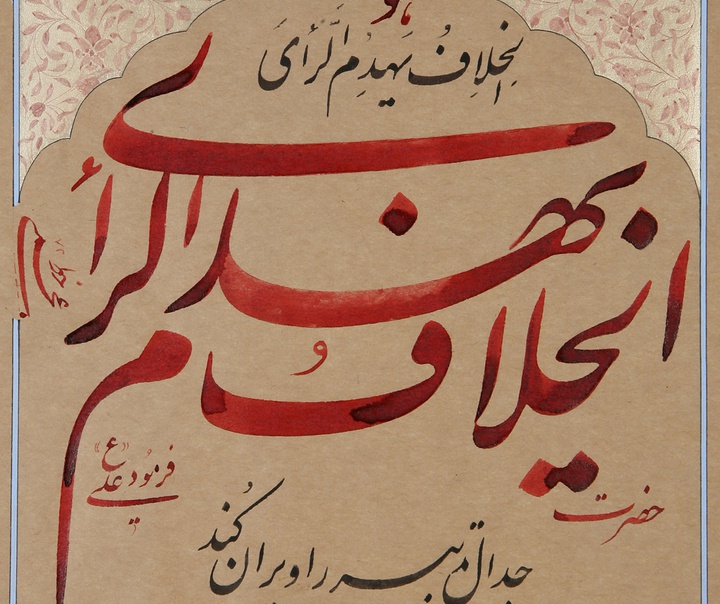 هو
اَلخِلافُ یَهدِمُ الرَّأیَ
الخلافُ یهدم الرأی
حضرت علی «ع» فرمود
جدال تدبیر را ویران کُند